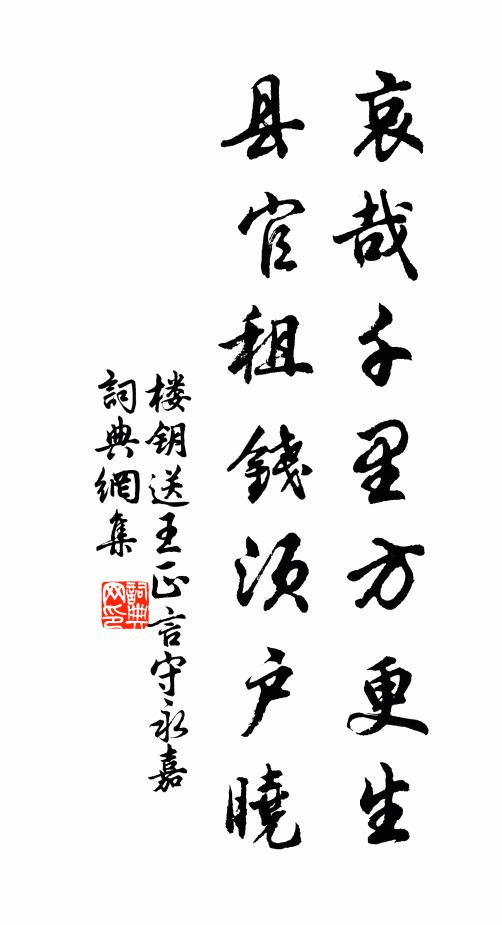 哀哉千里方更生
县官租錢須户曉
楼钥送王正言守永嘉
詞典網集
詞典网印